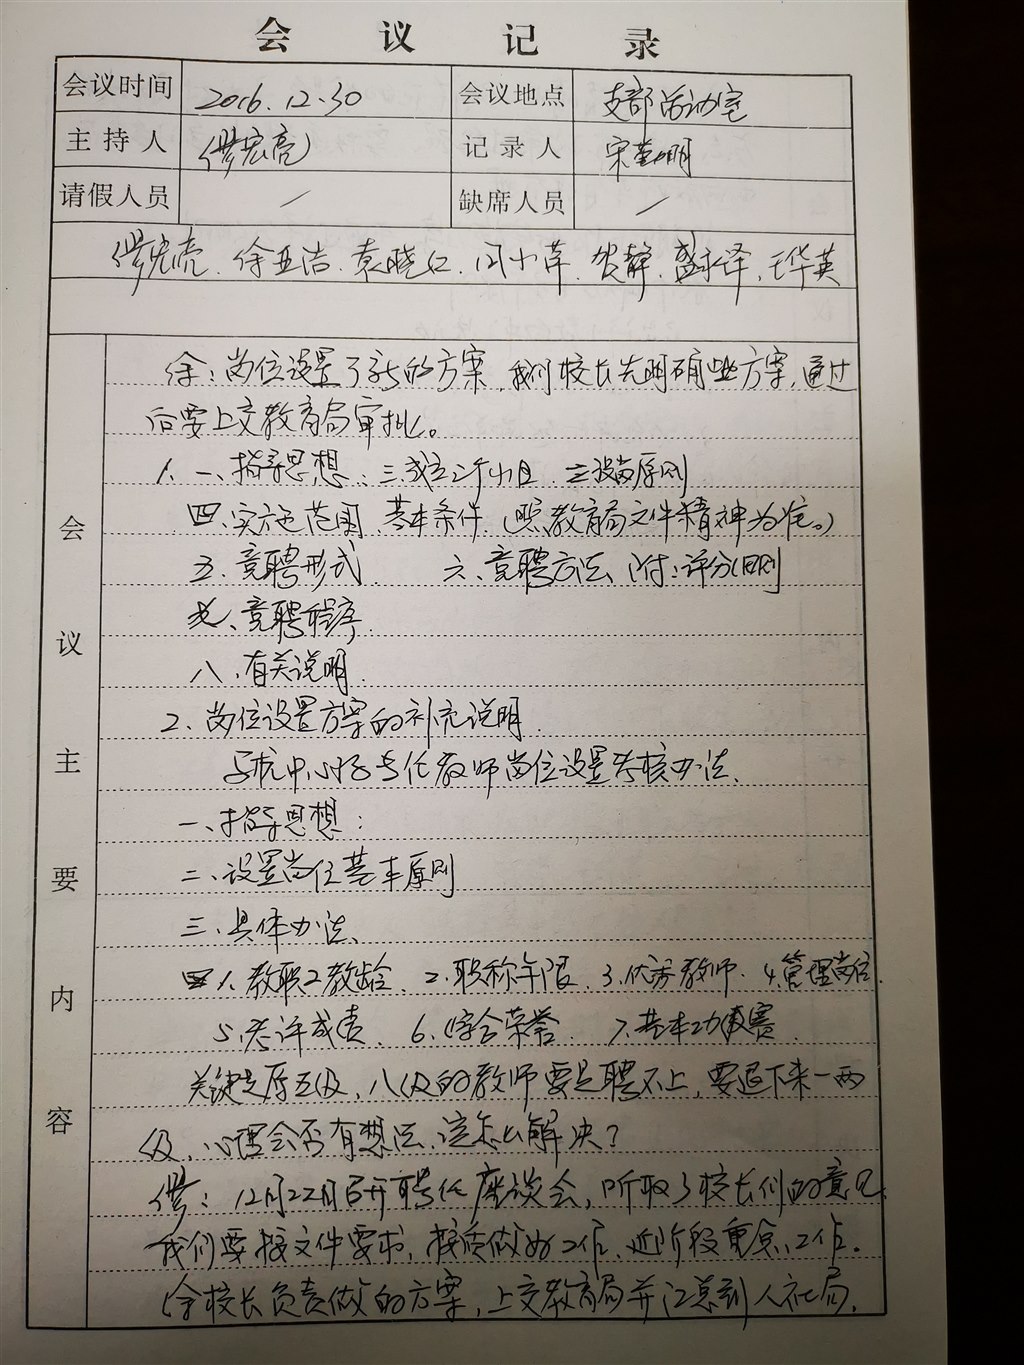 会议记录
会议时间 2016.12.30 会议地点 支部活动室
主持人 缪宏亮 记录人 宋 明
请假人员 / 缺席人员 /
缪宏亮、徐亚洁、袁晓红、闵小萍、贺静、盛永泽、王华英
徐：岗位设置了新的方案，我们校长先明确些方案，通过
后要上交教育局审批。
1. 一、指导思想 二、成立工作小组 三、设岗原则
四、实施范围、基本条件（照教育局文件精神为准。）
五、竞聘形式 六、竞聘方法、附：评分细则
七、竞聘程序
八、有关说明
2. 岗位设置方案的补充说明
中心校专任教师岗位设置考核办法、
一、指导思想：
二、设置岗位基本原则
三、具体办法、
1、教职工教龄、2、职称年限、3、优秀教师、4、管理岗位
5、考评成绩、6、综合荣誉、7、基本功竞赛
关键是原五级，八级的教师要是聘不上，要退下来一两
级，心理会否有想法，该怎么解决？
缪：12月22月召开聘任座谈会，听取了校长们的意见
我们要按文件要求，按质做好工作、近阶段重点工作。
徐校长负责做的方案，上交教育局并汇总到人社局，
会议主要内容